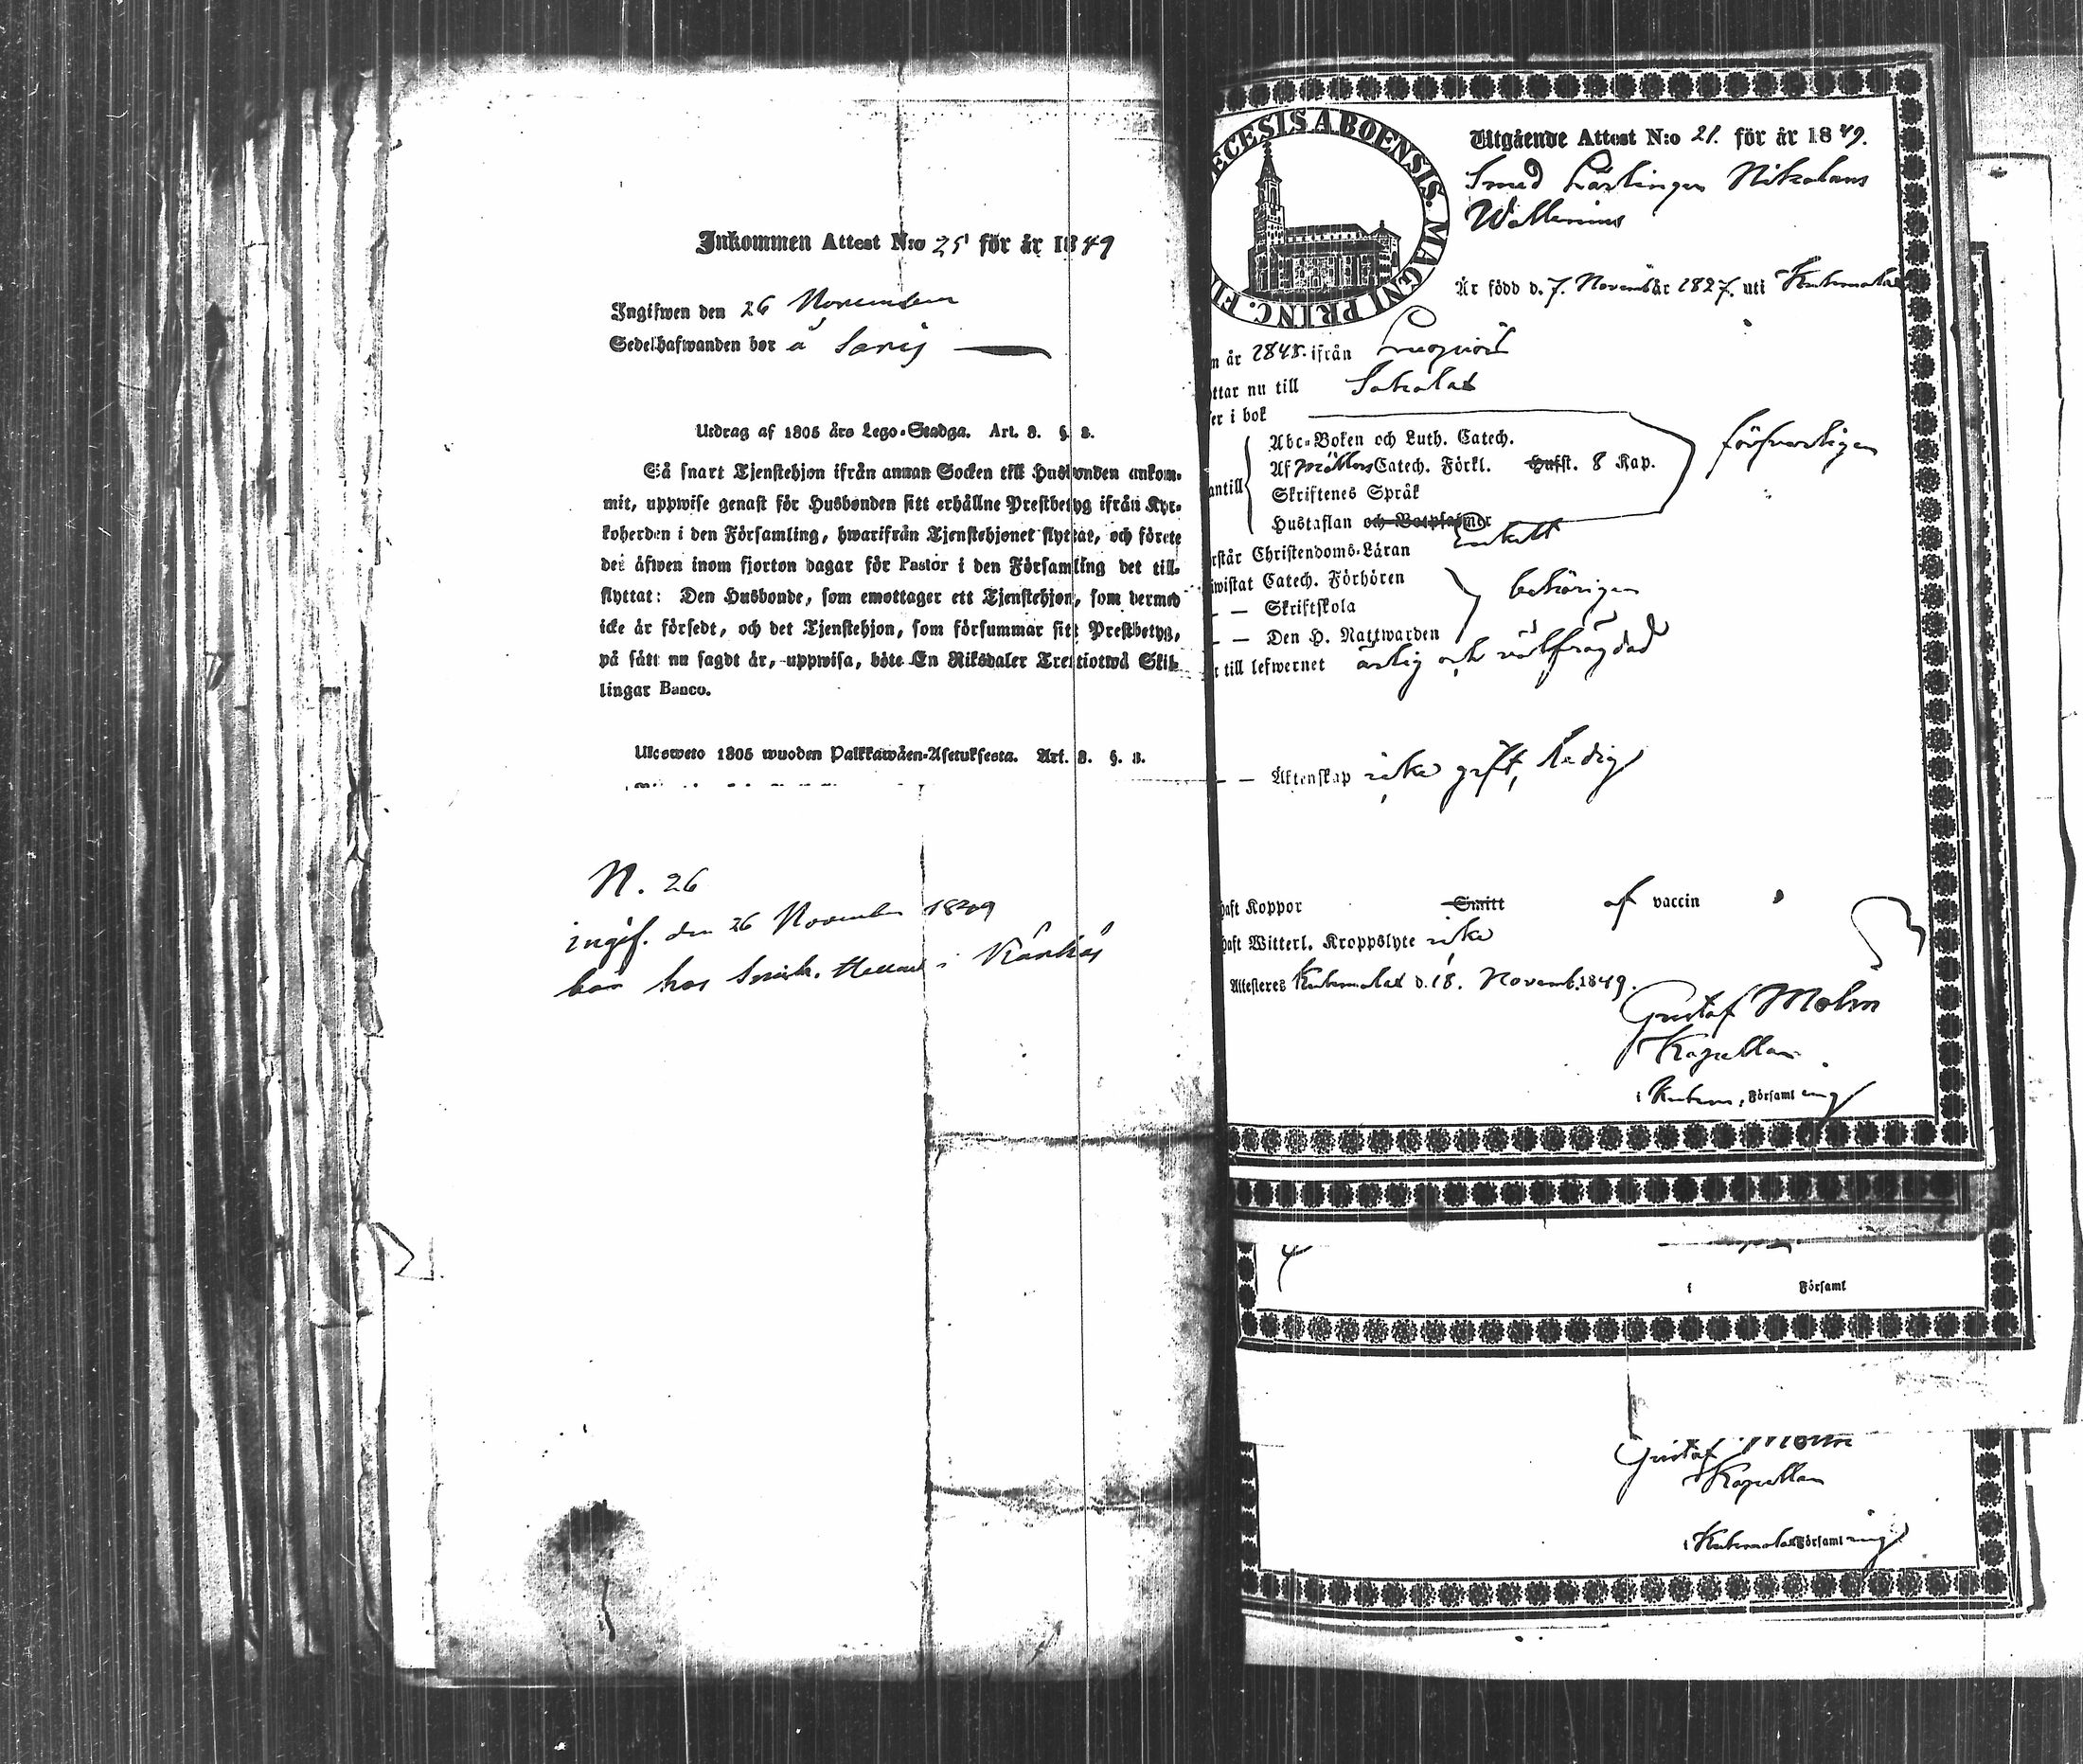 Inkommen Attest N:o 25 för år 1849
Ingifwen den 26 November
Sedelhafwanden bor å Sarij
Utdrag af 1805 års Lego-Stadga. Art. 3. §. 3.
Så snart Tjenstehjon ifrån annan Socken till Husbonden ankom-
mit, uppwise genast för Husbonden sitt erhållne Prestbetyg ifrån Kyr-
koherden i den Församling, hwarifrån Tjenstehjonet flyttat, och förete
det äfwen inom fjorton dagar för Pastor i den Församling det till-
flyttat: Den Husbonde, som emottager ett Tjenstehjon, som dermed
icke är försedt, och det Tjenstehjon, som försummar sitt Prestbetyg,
på sätt nu sagdt är, uppwisa, böte En Riksdaler Trettiotwå Skil-
lingar Banco.
Ulosweto 1805 wuoden Palkkawäen-Asetuksesta. Art. 3. §. 3.
N. 26
ingif. den 26 November 1849
bor hos i Kärkis
ECESIS ABOENSIS. MAGNI PRINC. FI
Utgående Attest N:o 21. för år 1849.
Smed Lärlingen Nikolaus
Wallenius
Är född d. 7. November 1827. uti Kulsmala
n år 1848. ifrån
ttar nu till Sakola
er i bok
Abc-Boken och Luth. Catech.
Af Möllers Catech. Förkl. Husst. 8 Kap.
förswarligen
antill
Skriftenes Språk
Hustaflan och Botpsalmer
rstår Christendoms-Läran enkelt
iwistat Catech. Förhören
— — Skriftskola behörigen
— — Den H. Nattwarden
r till lefwernet ärlig och välfrägdad
— — Äktenskap icke gift, ledig
haft Koppor Smitt af vaccin
haft Witterl. Kroppslyte icke
Attesteres d. 18. Novemb. 1849.
Gustaf Molin
Kapellan
i Församling
i Församl
Gustaf Molin
Kapellan
i Församling